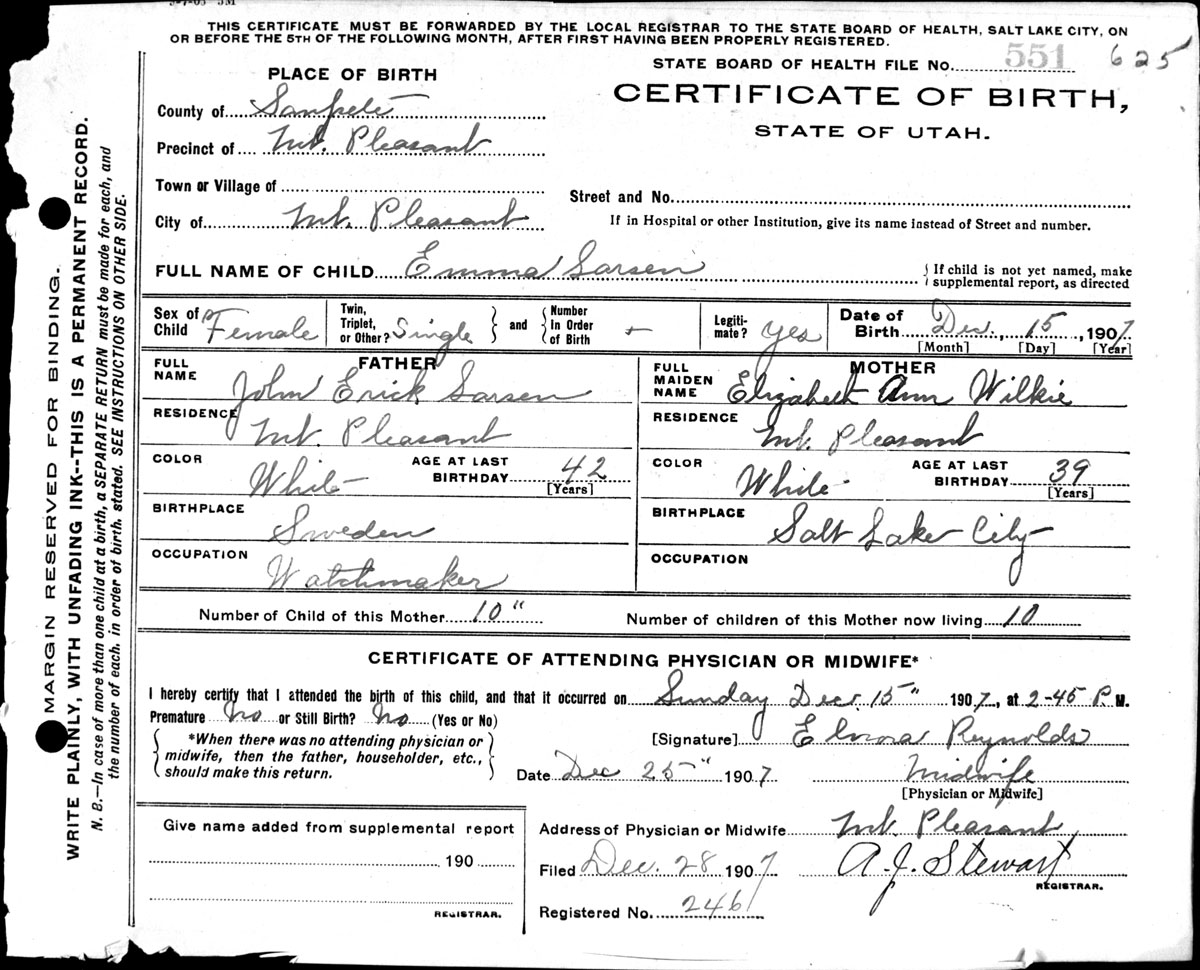 THIS CERTIFICATE MUST BE FORWARDED BY THE LOCAL REGISTRAR TO THE STATE BOARD OF HEALTH, SALT LAKE CITY, ON
OR BEFORE THE 5TH OF THE FOLLOWING MONTH, AFTER FIRST HAVING BEEN PROPERLY REGISTERED.
STATE BOARD OF HEALTH FILE NO. 551 625
CERTIFICATE OF BIRTH,
STATE OF UTAH.
PLACE OF BIRTH
County of Sanpete
Precinct of Mt. Pleasant
Town or Village of
Street and No.
City of Mt. Pleasant
If in Hospital or other Institution, give its name instead of Street and number.
FULL NAME OF CHILD Emma Larsen
If child is not yet named, make
supplemental report, as directed
Sex of Child Female
Twin, Triplet, or Other? Single
and Number In Order of Birth +
Legiti-mate? Yes
Date of Birth Dec. 15, 1907
[Month] [Day] [Year]
FATHER
FULL NAME John Erick Larsen
RESIDENCE Mt. Pleasant
COLOR White AGE AT LAST BIRTHDAY 42
[Years]
BIRTHPLACE Sweden
OCCUPATION Watchmaker
MOTHER
FULL MAIDEN NAME Elizabeth Ann Wilkie
RESIDENCE Mt. Pleasant
COLOR White AGE AT LAST BIRTHDAY 39
[Years]
BIRTHPLACE Salt Lake City
OCCUPATION
Number of Child of this Mother 10" Number of children of this Mother now living 10
CERTIFICATE OF ATTENDING PHYSICIAN OR MIDWIFE*
I hereby certify that I attended the birth of this child, and that it occurred on Sunday Dec. 15" 1907, at 2-45 P. M.
Premature No or Still Birth? No (Yes or No)
*When there was no attending physician or
midwife, then the father, householder, etc.,
should make this return.
[Signature] Elnora Reynolds
Date Dec 25" 1907 Midwife
[Physician or Midwife]
Give name added from supplemental report
190
REGISTRAR.
Address of Physician or Midwife Mt. Pleasant
Filed Dec. 28 1907 A. J. Stewart
REGISTRAR.
Registered No. 246
MARGIN RESERVED FOR BINDING.
WRITE PLAINLY, WITH UNFADING INK--THIS IS A PERMANENT RECORD.
N. B.—In case of more than one child at a birth, a SEPARATE RETURN must be made for each, and
the number of each, in order of birth, stated. SEE INSTRUCTIONS ON OTHER SIDE.